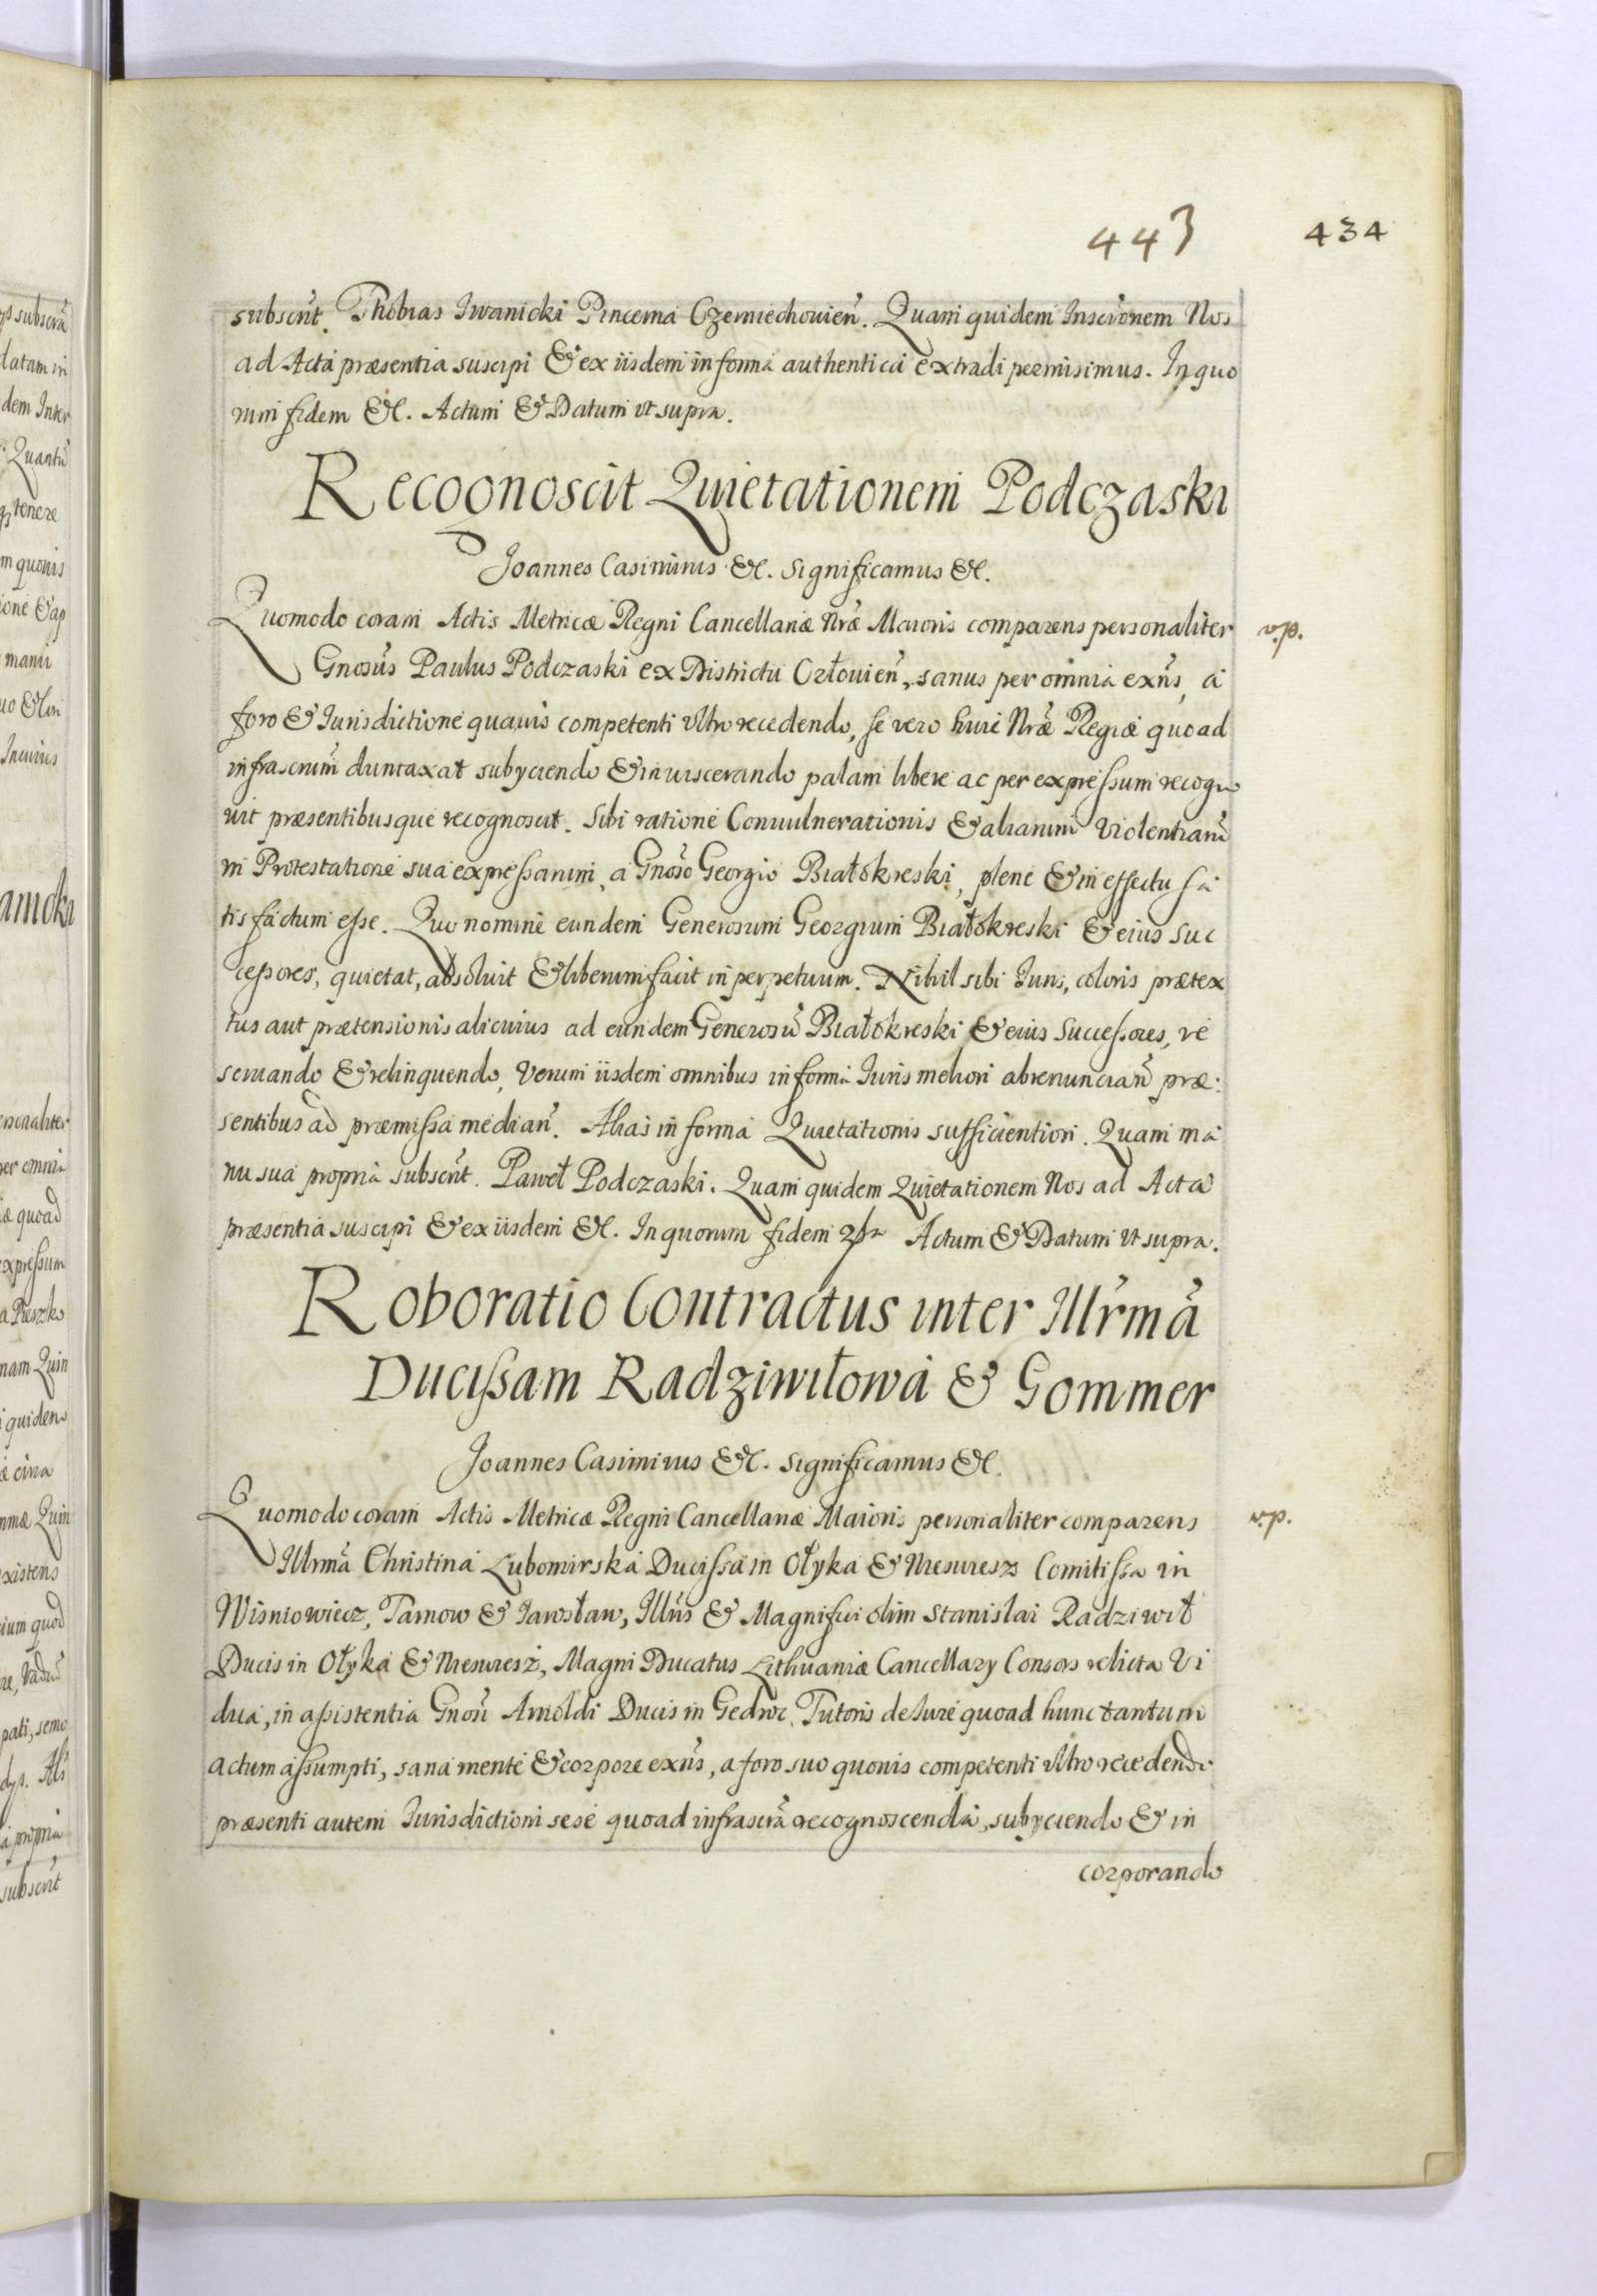 443 434
subscrit. Thobias Iwanicki Pincerna Czerniechouien. Quam quidem Inscronem Nos
ad Acta præsentia suscipi & ex iisdem in forma authentica extradi permisimus. In quo
rum fidem &c. Actum & Datum vt supra.
Recognoscit Quietationem Podczaski
Joannes Casimirus &c. Significamus &c.
Quomodo coram Actis Metricæ Regni Cancellariæ Nræ Maioris comparens personaliter v.p.
Gnosus Paulus Podczaski ex Districtu Człouien, sanus per omnia exns, a
foro & Iurisdictione quauis competenti vltro recedendo, se vero huic Nræ Regiæ quoad
infrascrum duntaxat subyciendo & inuiscerando palam libere ac per expressum recogno
uit præsentibusque recognoscit. Sibi ratione Conuulnerationis & aliarum violentiarum
in Protestatione sua expressarum, a Gnoso Georgio Białokreski, plene & in effectu sa
tisfactum esse. Quo nomine eundem Generosum Georgium Białokreski & eius Suc
cessores, quietat, absoluit & liberum facit in perpetuum. Nihil sibi Iuris, coloris prætex
tus aut prætensionis alicuius ad eundem Generosu Białokreski & eius Successores, re
seruando & relinquendo, Verum iisdem omnibus in forma Iuris meliori abrenuncian præ:
sentibus ad præmissa median. Alias in forma Quietationis sufficientiori. Quam ma
nu sua propria subscrit. Paweł Podczaski. Quam quidem Quietationem Nos ad Acta
præsentia suscipi & ex iisdem &c. In quorum fidem Actum & Datum vt supra.
Roboratio Contractus inter Illrma
Ducissam Radziwiłowa & Gommer
Joannes Casimirus &c. Significamus &c.
Quomodo coram Actis Metricæ Regni Cancellariæ Maioris personaliter comparens v.p.
Illrma Christina Lubomirska Ducissa in Ołyka & Nieswiesz Comitissa in
Wisniowiecz, Tarnow & Iarosław, Illris & Magnifici olim Stanislai Radziwił
Ducis in Ołyka & Nieswiesz, Magni Ducatus Lithuaniæ Cancellary Consors relicta Vi
dua, in assistentia Gnosi Arnoldi Ducis in Gedroc, Tutoris de Iure quoad hunc tantum
actum assumpti, sana mente & corpore exns, a foro suo quouis competenti vltro recedendo
præsenti autem Iurisdictioni sese quoad infrascra recognoscenda, subyciendo & in
corporando